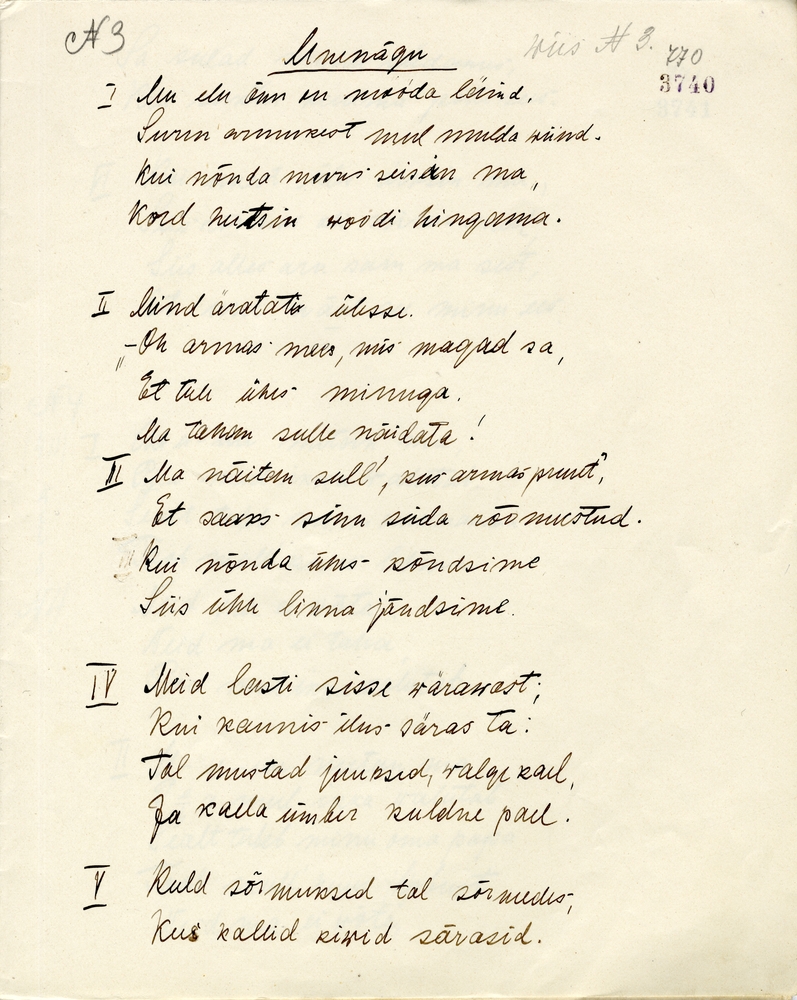 N 3
Unenägu
wiis N 3.
770
3740
I Mu elu õnn on mööda läind,
Surm armukest mul mulda wiind.
Kui nõnda mures seisin ma,
Kord heitsin woodi hingama.
II Mind äratati ülesse.
„-Oh armas mees, mis magad sa,
Et tule ühes minuga.
Ma tahan sulle näidata!
III Ma näitan sull', kus armas pruut",
Et saaks sinu süda rõõmustud.
III Kui nõnda ühes kõndsime
Siis ühte linna jõudsime.
IV Meid lasti sisse wärawast;
Kui kaunis-ilus säras ta:
Tal mustad juuksed, walge kael,
Ja kaela ümber kuldne pael.
V Kuld sõrmuksed tal sõrmedes,
Kus kallid kiwid särasid.